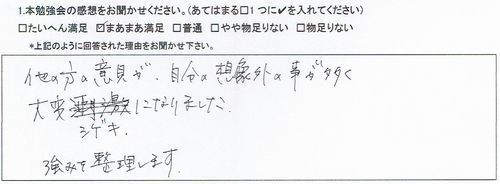 1.本勉強会の感想をお聞かせください。(あてはまる□1つに✔を入れてください)
□たいへん満足 ☑まあまあ満足 □普通 □やや物足りない □物足りない
*上記のように回答された理由をお聞かせ下さい。
他の方の意見が、自分の想像外の事が多く
大変刺激になりました。
シゲキ.
強みを整理します.